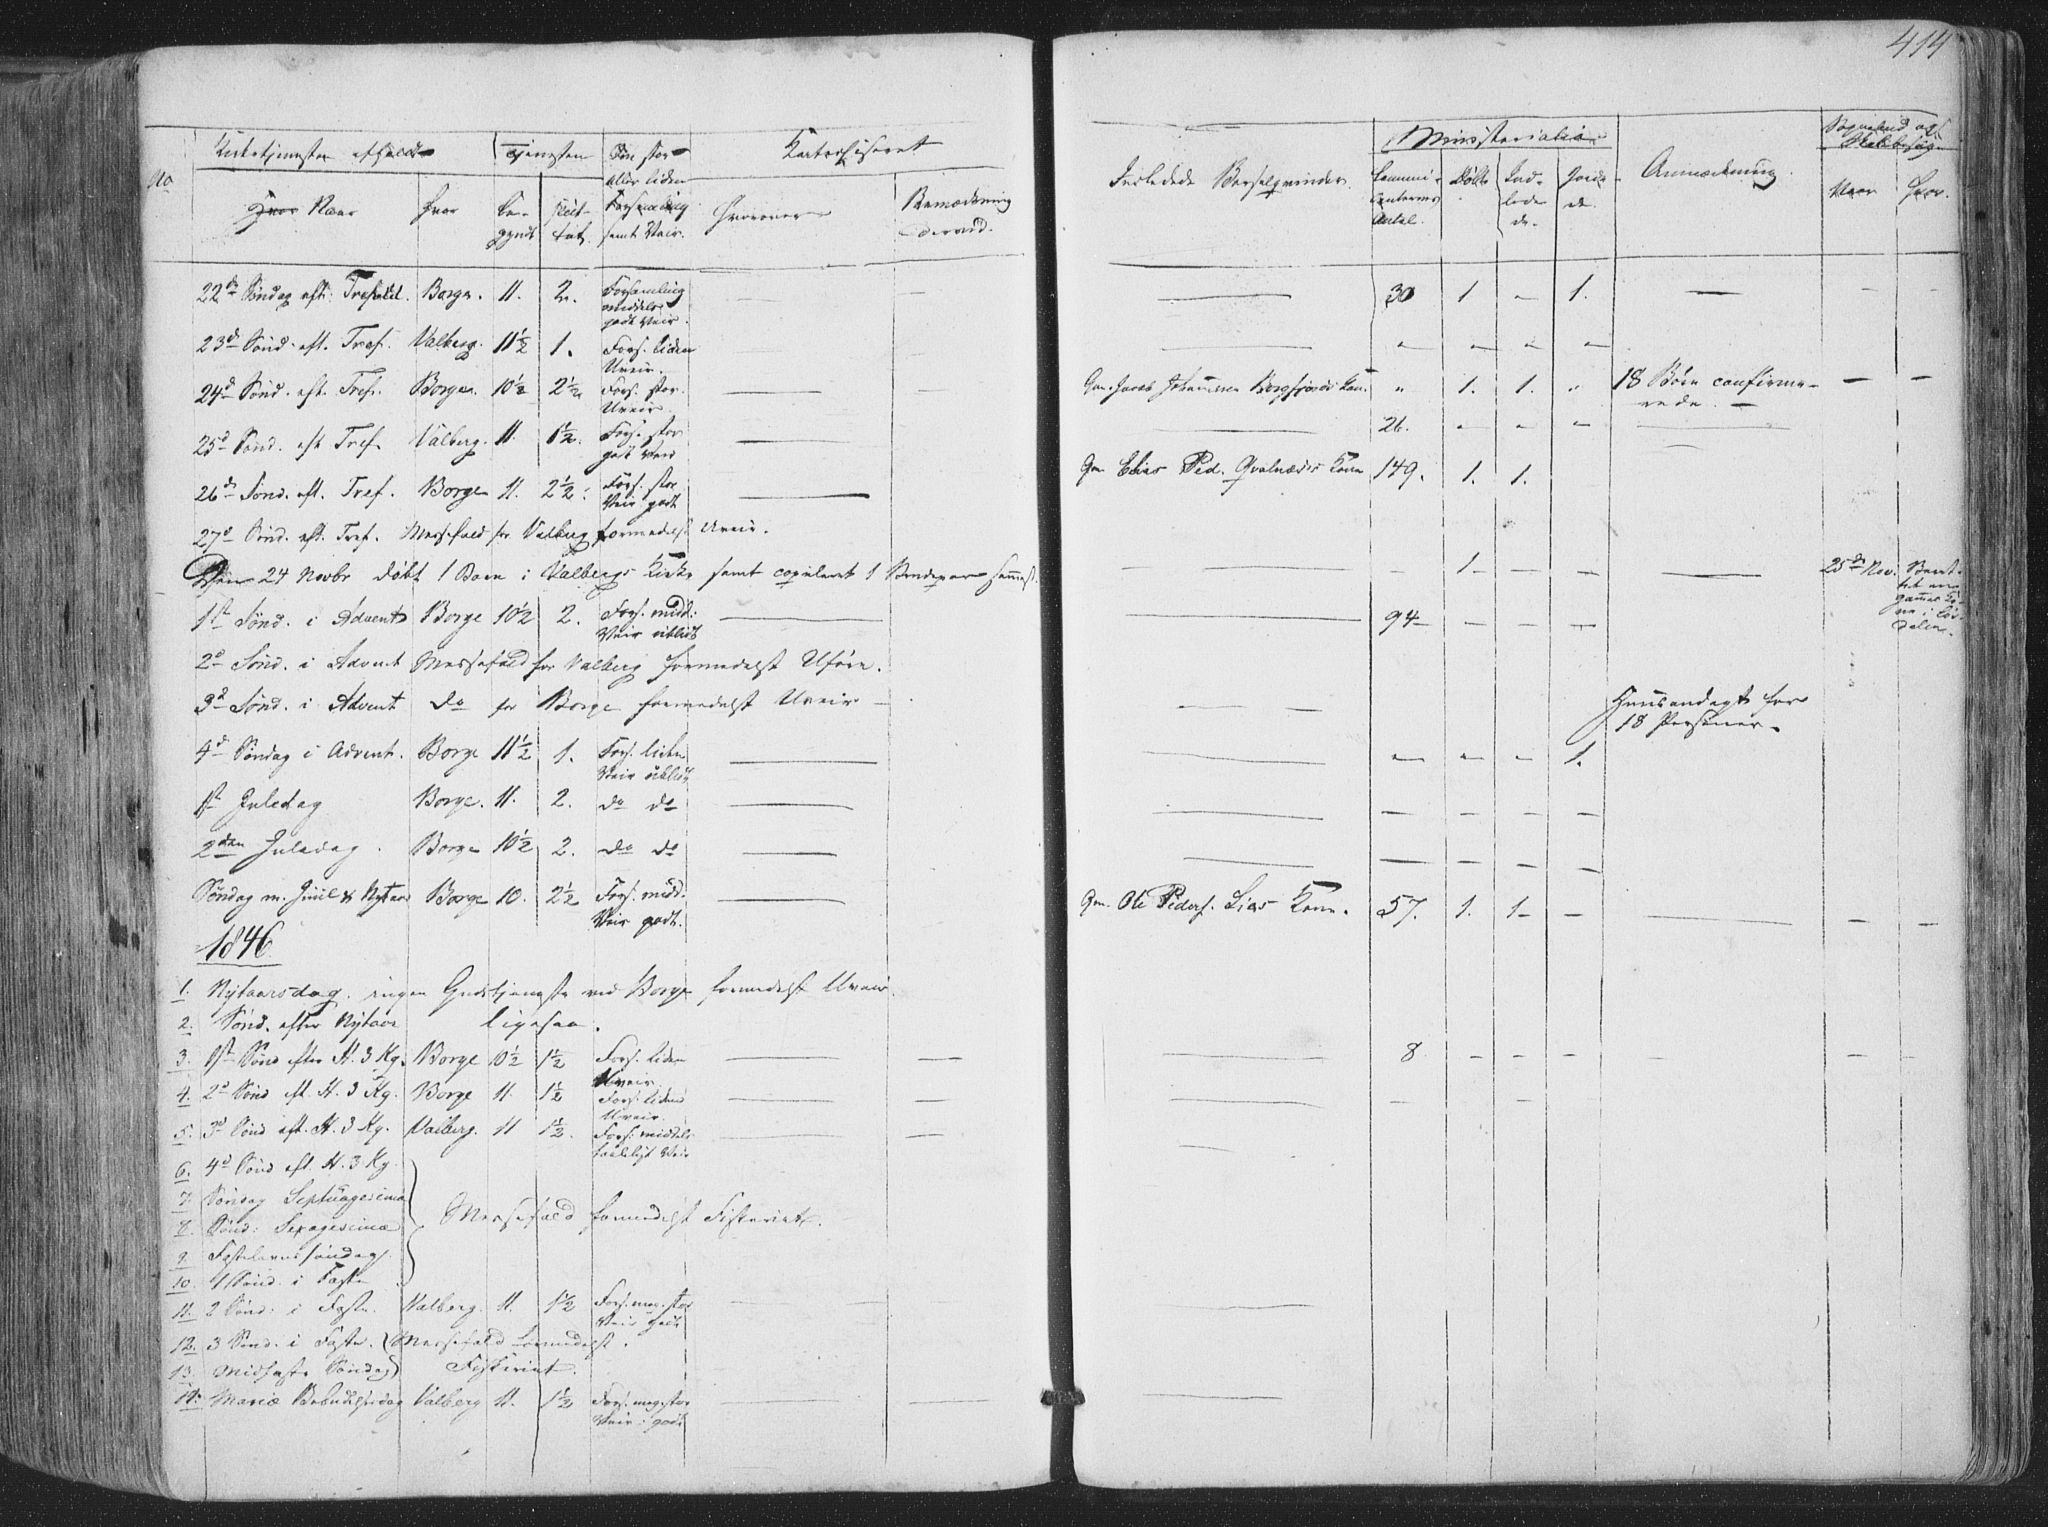 414
No
Kirketjenesten afholdt
Tjenesten
Om stor
eller liden
Forsamling
samt Veir.
Katechiseret
Hvor Naar
hvor
Be-
gyndt
slut-
tet
Hvorover
Bemærkning
derved.
Indledede Barselqvinder.
Ministerialia
Communi-
canternes
Antal.
Døbte
Ind-
lede
de.
Jorde
de.
Anmærkning
Sognebud og
Naar
hvor.
22de Søndag eft: Trefold. Borge. 11. 2. Forsamling middels godt Veir. 30 1 - 1.
23d Sönd. eft. Tref. Valberg. 11½ 1. Fors. liden Uveir.
24d Sönd. eft. Tref. Borge. 10½ 2½ Fors. stor. Uveir. Gm. Jacob Johannesen Kone. " 1. 1. " 18 Börn confirme-
rede.
25d Sönd. eft Tref. Valberg. 11. 1½. Fors. stor godt Veir 26.
26d Sönd. eft. Tref. Borge 11. 2½. Fors. stor Veir godt Gm. Elias Ped. Qvalnæsis Kone 149. 1. 1.
27d Sönd. eft. Tref. Messefald for Valberg formedelst Uveir.
Den 24 Novbr döbt 1 Barn i Valbergs Kirke samt copuleret 1 Brudepar sammest. 1 25de Nov.
1st Sönd. i Advent Borge 10½ 2. Fors. midd: Veir 94
2d Sönd. i Advent Messefald for Valberg formedelst Uföre.
3d Sönd. i Advent do for Borge formedelst Uveir Huusandagt for
18 Personer.
4d Söndag i Advent. Borge 11½ 1. Fors. liden Veir 1.
1st Juledag Borge. 11. 2. do do
2den Juledag. Borge 10½ 2. do do
Söndag m. Juul & Nytaar Borge 10. 2½ Fors. midd. Veir godt. Gm. Ole Peders. Lies Kone. 57. 1. 1
1846
1. Nytaarsdag. ingen Gudstjeneste ved Borge formedelst Uveir.
2. Sönd. efter Nytaar ligesaa.
3. 1st Sönd efter H. 3 Kg. Borge 10½ 1½ Fors. liden Uveir. 8
4. 2d Sönd eft. H. 3 Kg. Borge 11. 1½ Fors. liden Uveir.
5. 3d Sönd eft. H. 3 Kg. Valberg. 11 1½. Fors. middels taaleligt Veir
6. 4d Sönd eft. H. 3 Kg.
7. Söndag Septuagesima
8. Sönd: Sexagesima Messefald formedelst Fiskeriet.
9. Fastelavns söndag.
10. 1 Sönd. i Faste
11. 2 Sönd: i Faste. Valberg. 11. 1½ Fors. meg. stor Veir godt
12. 3 Sönd. i Faste. Messefald formedelst.
13. Midfaste Söndag Fiskeriet.
14. Mariæ Bebudelsesdag Valberg 11. 1½ Fors. meg stor Veir godt